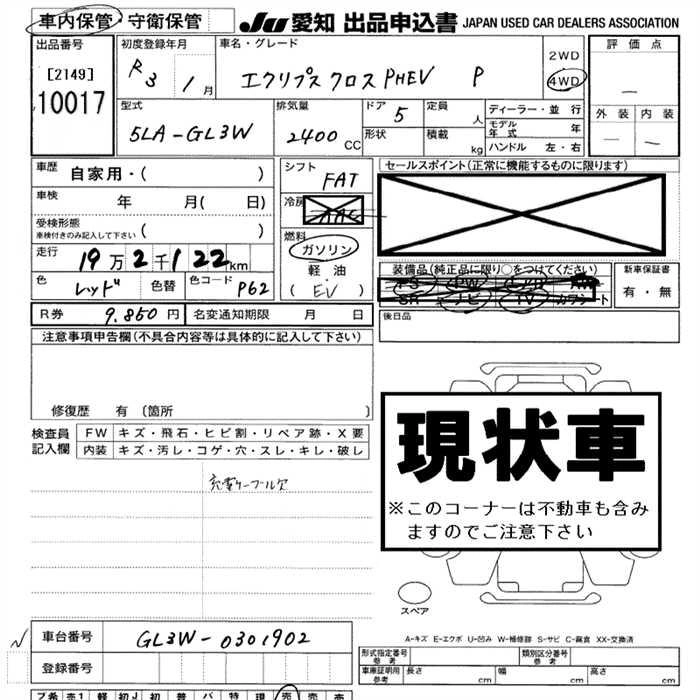 車内保管・守衛保管 JU 愛知 出品申込書 JAPAN USED CAR DEALERS ASSOCIATION
出品番号 初度登録年月 車名・グレード 2WD 評価点
[2149] R3 / 1月 エクリプス クロス PHEV P 4WD —
10017
型式 排気量 ドア 5 定員 人 ディーラー・並行 外装 内装
5LA-GL3W 2400CC 形状 積載 kg モデル年式 年 — —
ハンドル 左・右
車歴 自家用・( ) シフト FAT セールスポイント(正常に機能するものに限ります)
車検 年 月( 日) 冷房 AAC
受検形態 ( )
車検付きのみ記入して下さい 燃料
走行 19万2千122km ガソリン 装備品(純正品に限り○をつけてください) 新車保証書
色 レッド 色替 色コード P62 軽油 PS PW 有・無
(EV) SR ナビ TV カワシート
R券 9,850円 名変通知期限 月 日 後日品
注意事項申告欄(不具合内容等は具体的に記入して下さい)
修復歴 有(箇所 )
現状車
※このコーナーは不動車も含みますのでご注意下さい
検査員 FW キズ・飛石・ヒビ割・リペア跡・X要
記入欄 内装 キズ・汚レ・コゲ・穴・スレ・キレ・破レ
充電ケーブル欠
スペア
A-キズ E-エクボ U-凹み W-補修跡 S-サビ C-腐食 XX-交換済
車台番号 GL3W-0301902
登録番号
型式指定番号 参考 類別区分番号 参考
車庫証明用 参考 長さ cm 幅 cm 高さ cm